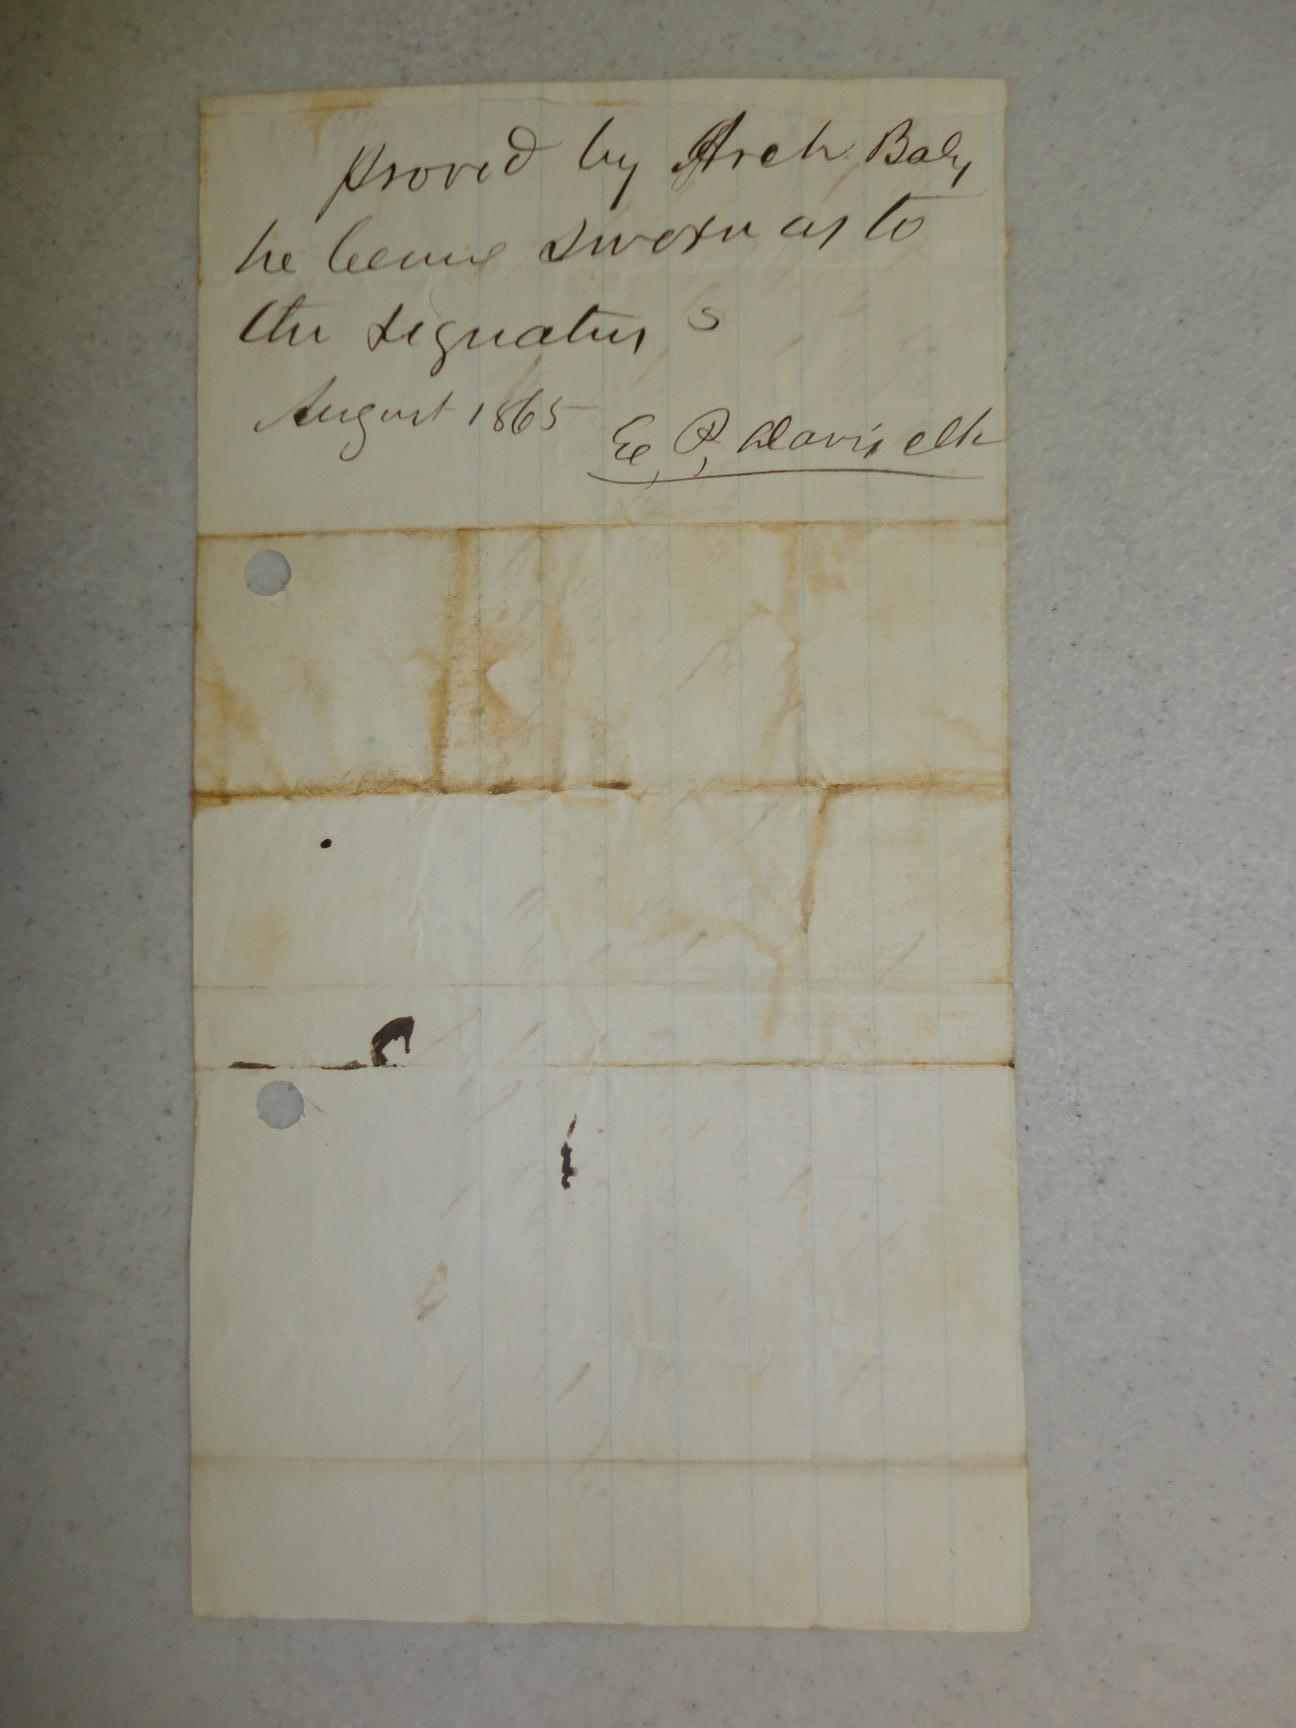 Proved by Arch Baly
he being sworn as to
the signatures
August 1865
E, P, Davis clk